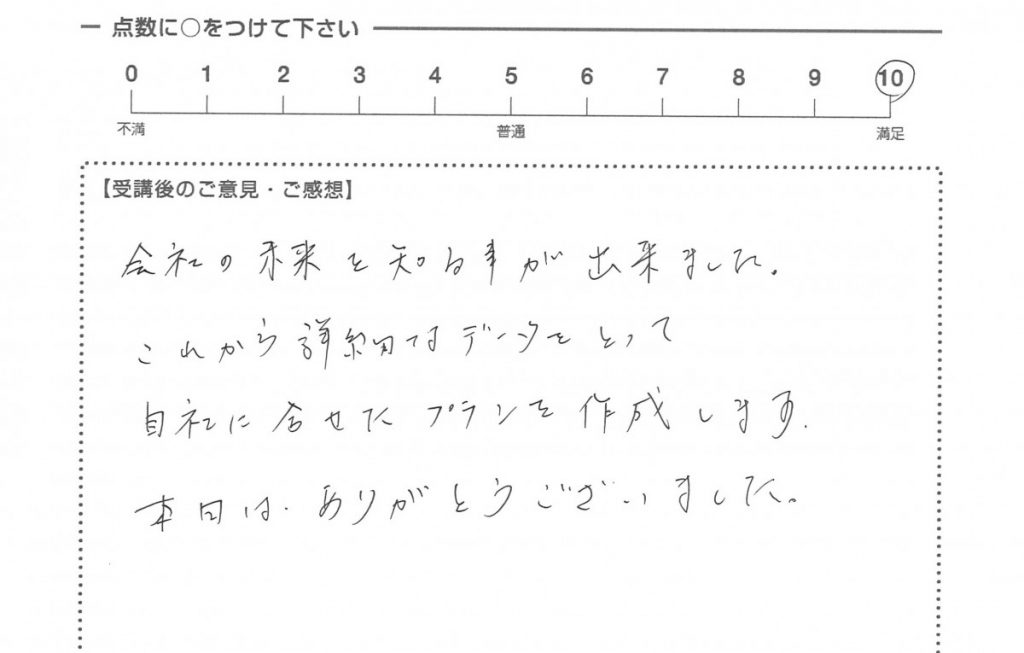 点数に○をつけて下さい
0 1 2 3 4 5 6 7 8 9 10
不満 普通 満足
【受講後のご意見・ご感想】
会社の未来を知る事が出来ました。
これから詳細なデータをとって
自社に合せたプランを作成します.
本日は、ありがとうございました。